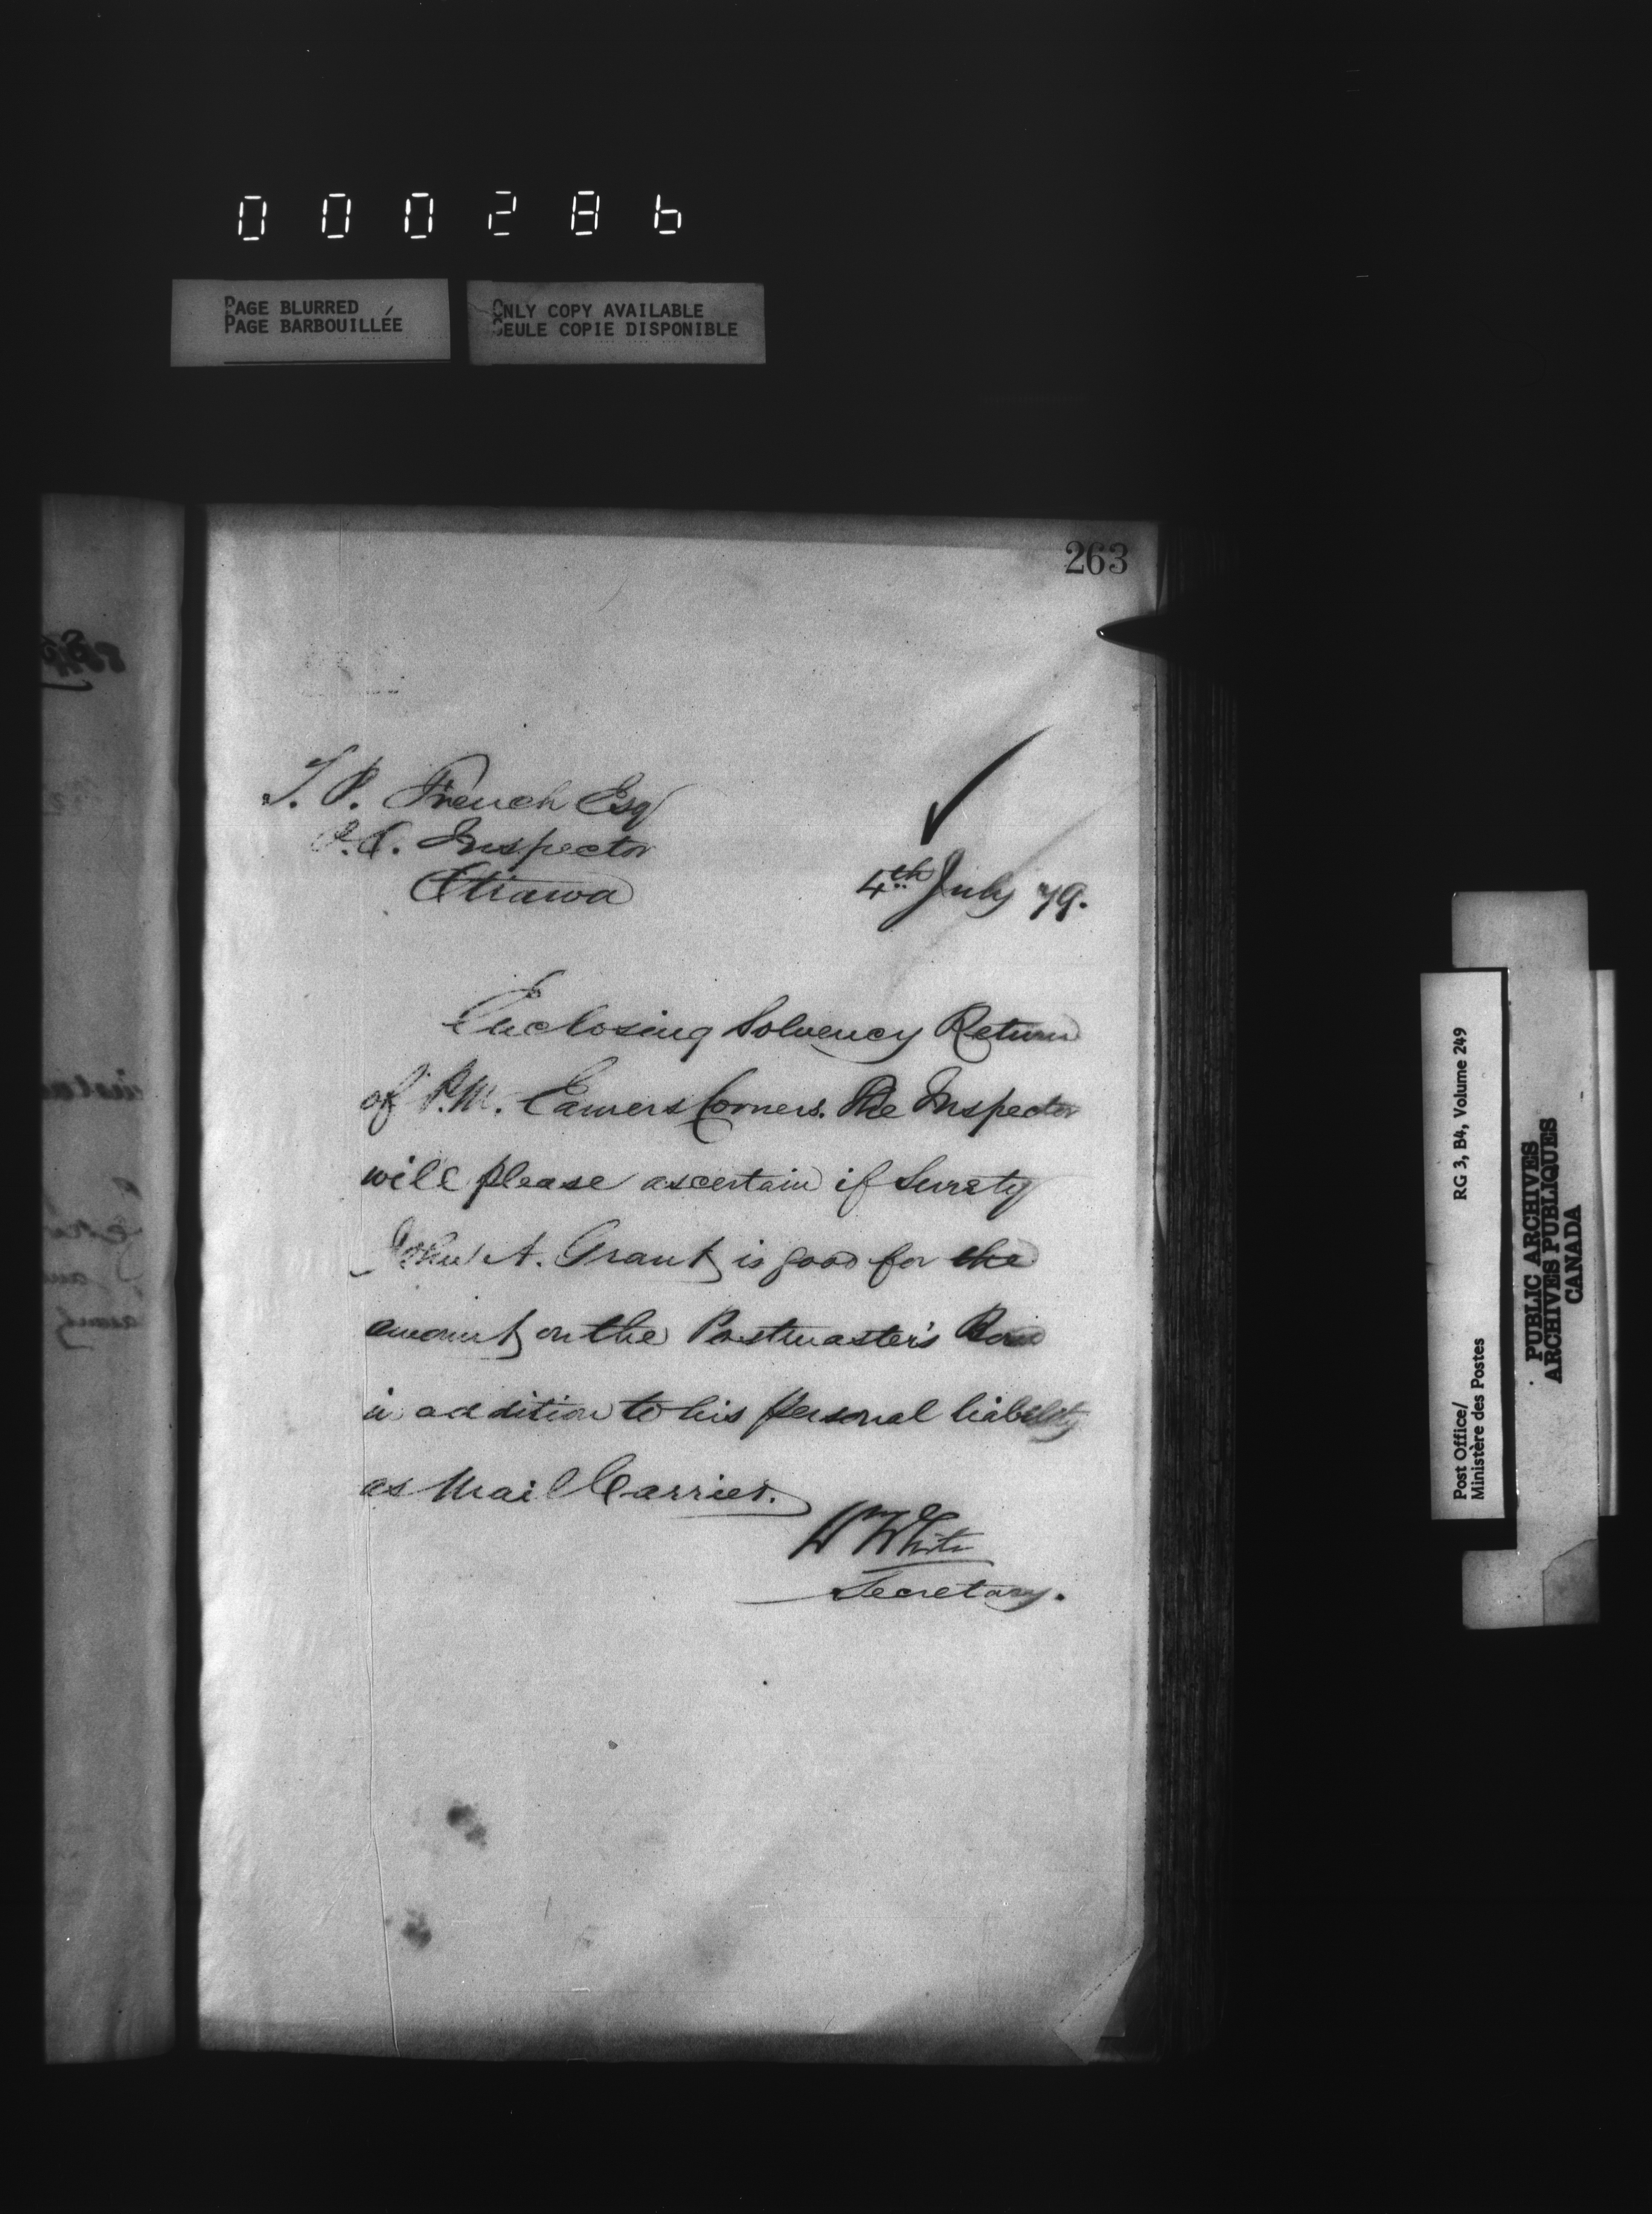 000286
PAGE BLURRED
PAGE BARBOUILLÉE
ONLY COPY AVAILABLE
SEULE COPIE DISPONIBLE
263
T. P. French Esq
P.O. Inspector
Ottawa
4th July 79.
Enclosing Solvency Return
of P.M. Eamers Corners. The Inspector
will please ascertain if Surety
John A. Grant is good for the
amount on the Postmaster's Bond
in addition to his personal liability
as Mail Carrier.
W White
Secretary.
Post Office/
Ministère des Postes
RG 3, B4, Volume 249
PUBLIC ARCHIVES
ARCHIVES PUBLIQUES
CANADA